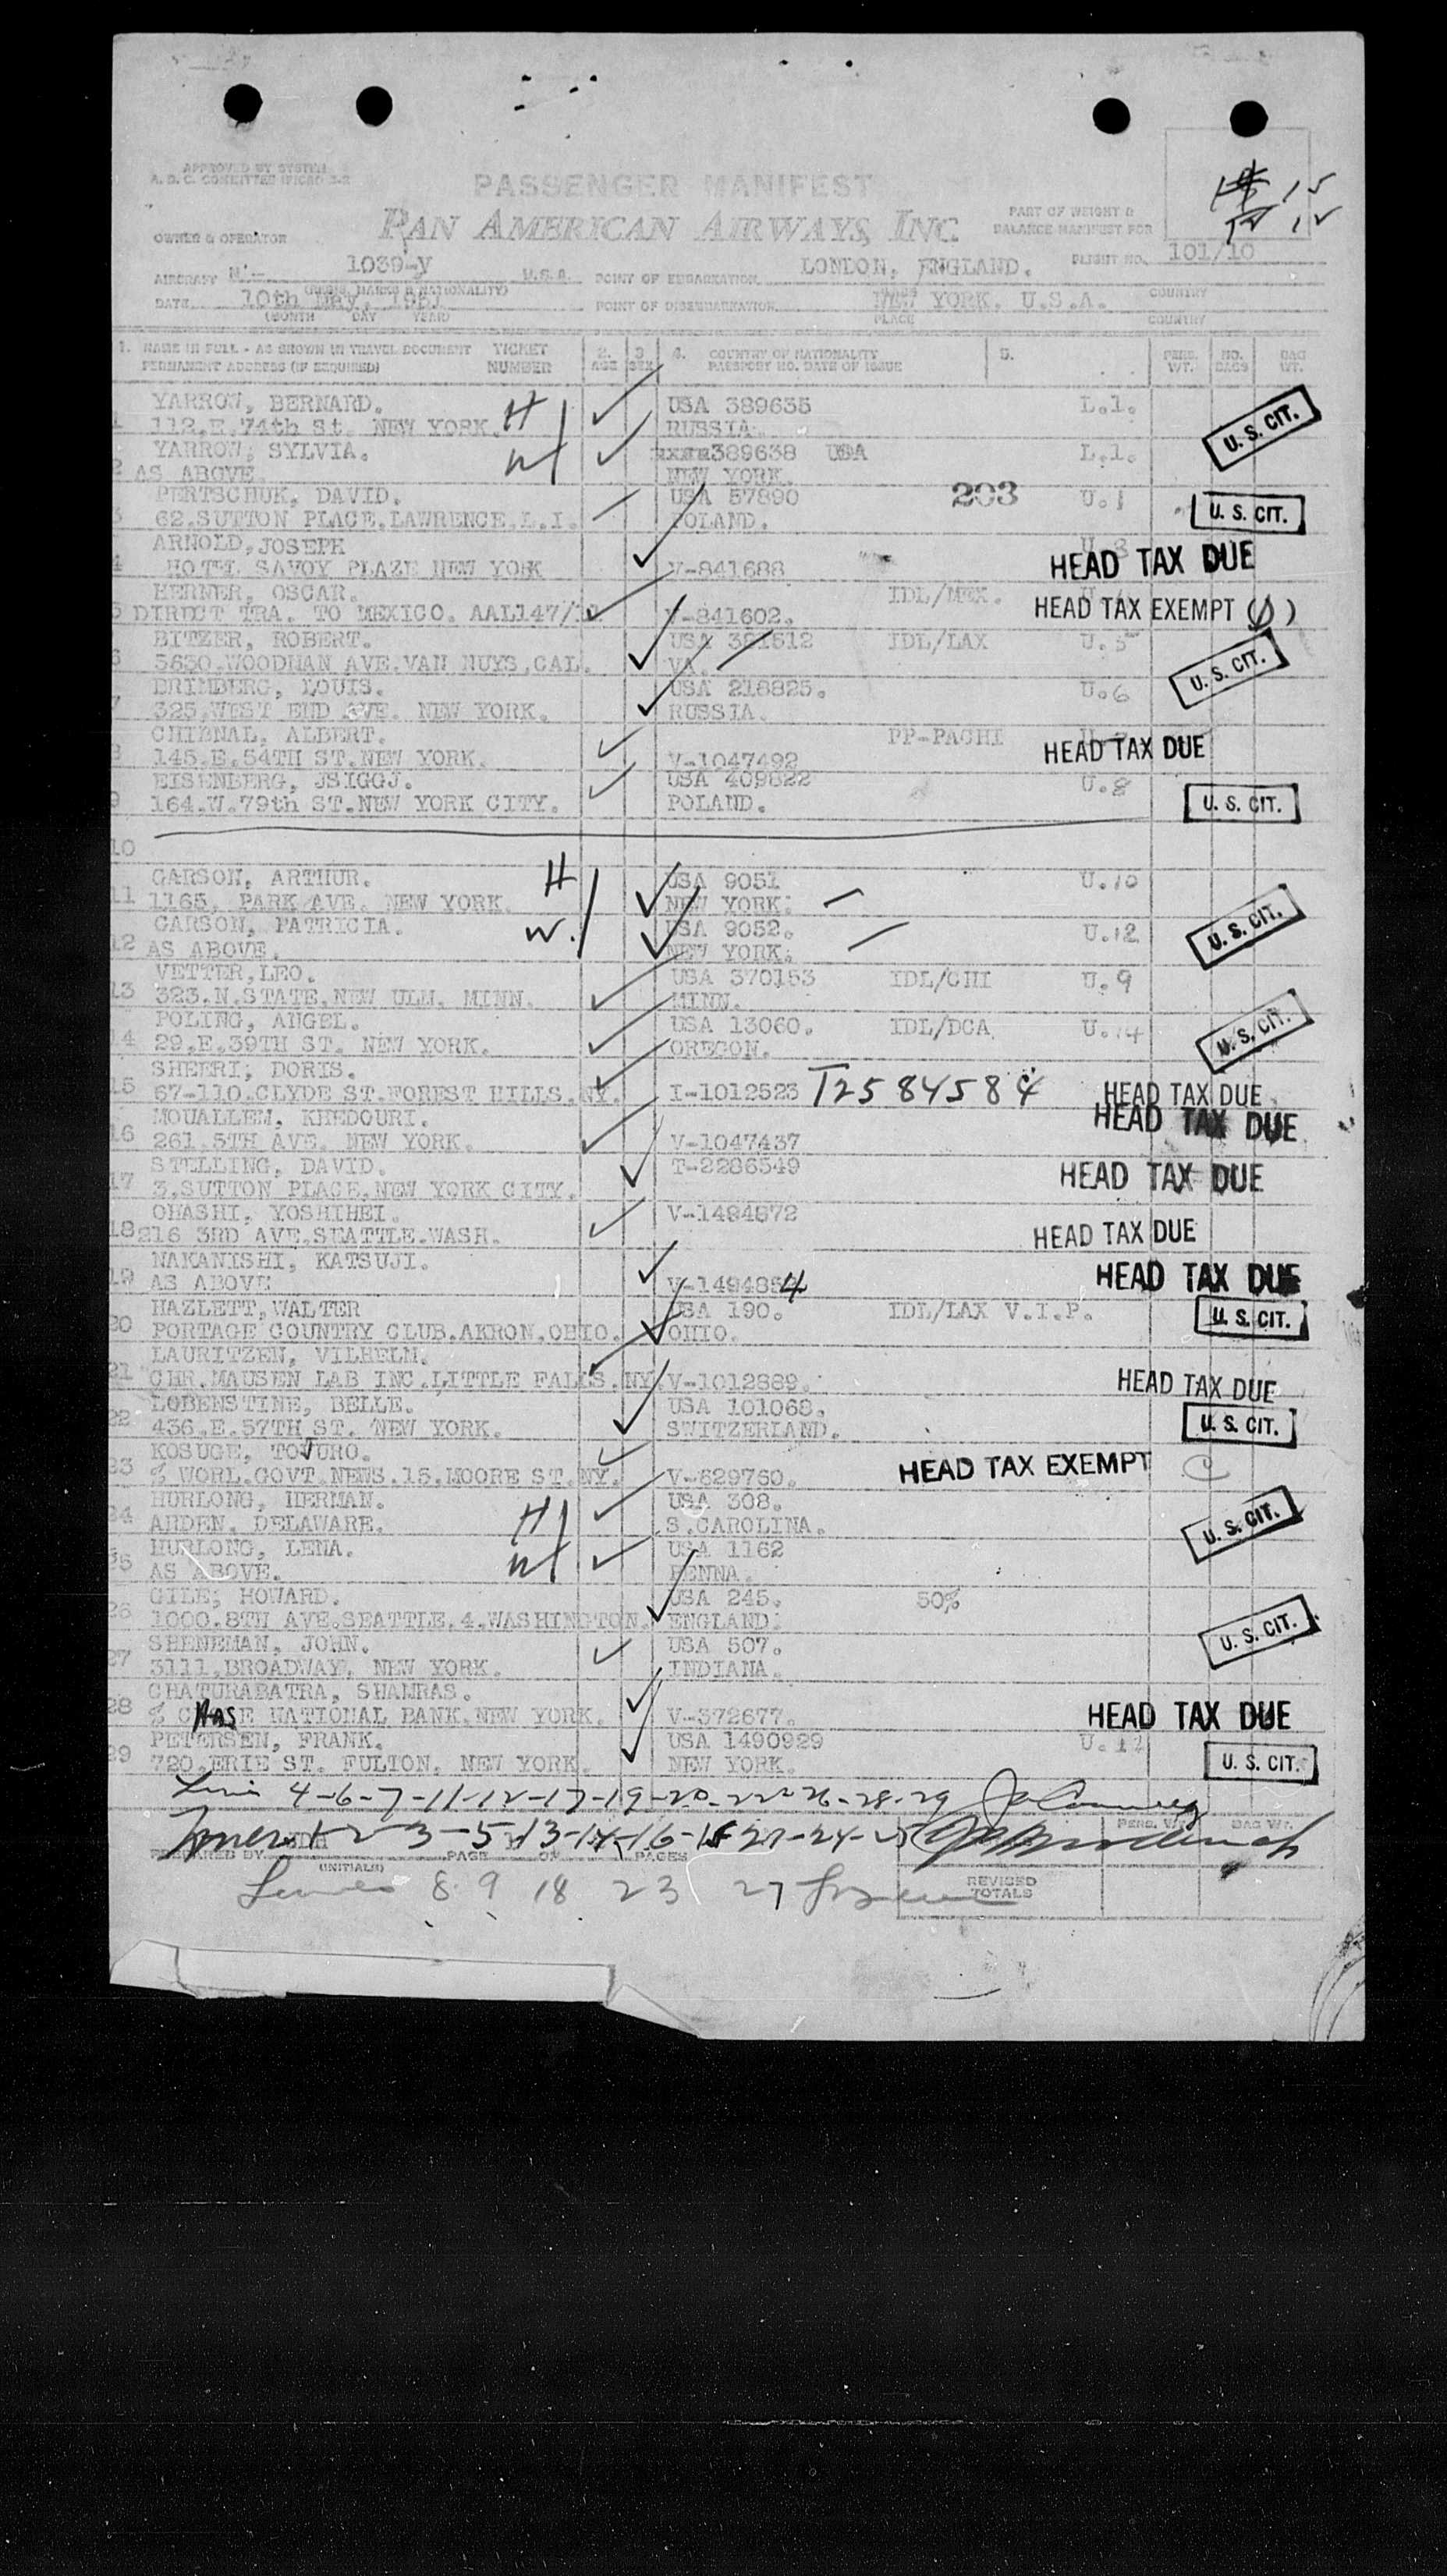 APPROVED BY SYSTEM
PASSENGER MANIFEST
PAN AMERICAN AIRWAYS, INC.
PART OF WEIGHT &
BALANCE MANIFEST FOR
15
OWNER & OPERATOR
AIRCRAFT N'.- 1039-y U.S.A. POINT OF EMBARKATION LONDON, ENGLAND. FLIGHT NO. 101/10
(REGIS. MARKS & NATIONALITY)
DATE 10th May, 1951 POINT OF DISEMBARKATION NEW YORK, U.S.A. COUNTRY
(MONTH DAY YEAR) PLACE COUNTRY
1. NAME IN FULL - AS SHOWN IN TRAVEL DOCUMENT TICKET 2. 3. 4. COUNTRY OF NATIONALITY 5. PERS. NO. BAG
PERMANENT ADDRESS (IF REQUIRED) NUMBER AGE SEX PASSPORT NO. DATE OF ISSUE WT. BAGS WT.
YARROW, BERNARD. H USA 389635 L.1.
1 112.E.74th St. NEW YORK. RUSSIA. U. S. CIT.
YARROW, SYLVIA. W 389638 USA L.1.
2 AS ABOVE. NEW YORK.
PERTSCHUK, DAVID. USA 57890 203 U.1
3 62.SUTTON PLACE.LAWRENCE.L.I. POLAND. U. S. CIT.
ARNOLD, JOSEPH U.3
4 HOTEL SAVOY PLAZE NEW YORK V-841688 HEAD TAX DUE
HERNER, OSCAR. IDL/MEX.
5 DIRECT TRA. TO MEXICO. AAL147/ V-841602. HEAD TAX EXEMPT ( )
BITZER, ROBERT. USA 321512 IDL/LAX U.5
6 5630.WOODMAN AVE.VAN NUYS,CAL. VA. U. S. CIT.
BRIMBERG, LOUIS. USA 218825. U.6
7 325.WEST END AVE. NEW YORK. RUSSIA.
CHIBNAL, ALBERT. PP-PACHI
8 145.E.54TH ST.NEW YORK. V-1047492 HEAD TAX DUE
EISENBERG, JSIGGJ. USA 409822 U.8
9 164.W.79th ST.NEW YORK CITY. POLAND. U. S. CIT.
10
GARSON, ARTHUR. H USA 9051 U.10
11 1165. PARK AVE. NEW YORK. NEW YORK.
GARSON, PATRICIA. W. USA 9052. U.12 U. S. CIT.
12 AS ABOVE. NEW YORK.
VETTER, LEO. USA 370153 IDL/CHI U.9
13 323.N.STATE.NEW ULM. MINN. MINN.
POLING, ANGEL. USA 13060. IDL/DCA U.14 U. S. CIT.
14 29.E.39TH ST. NEW YORK. OREGON.
SHEERI, DORIS.
15 67-110.CLYDE ST.FOREST HILLS.NY. I-1012523 T2584584 HEAD TAX DUE
MOUALLEM, KHEDOURI. HEAD TAX DUE
16 261.5TH AVE. NEW YORK. V-1047437
STELLING, DAVID. T-2286549 HEAD TAX DUE
17 3.SUTTON PLACE.NEW YORK CITY.
OHASHI, YOSHIHEI. V-1484872
18 216 3RD AVE.SEATTLE.WASH. HEAD TAX DUE
NAKANISHI, KATSUJI.
19 AS ABOVE V-149485 4 HEAD TAX DUE
HAZLETT, WALTER USA 190. IDL/LAX V.I.P. U. S. CIT.
20 PORTAGE COUNTRY CLUB.AKRON,OHIO. OHIO.
LAURITZEN, VILHELM.
21 CHR.MAUSEN LAB INC.LITTLE FALLS.NY. V-1012889. HEAD TAX DUE
LOBENSTINE, BELLE. USA 101068.
22 436.E.57TH ST. NEW YORK. SWITZERLAND. U. S. CIT.
KOSUGE, TOJURO.
23 % WORL.GOVT NEWS.15.MOORE ST.NY. V-629760. HEAD TAX EXEMPT C
HURLONG, HERMAN. H USA 308.
24 ARDEN. DELAWARE. S.CAROLINA. U. S. CIT.
HURLONG, LENA. W USA 1162
25 AS ABOVE. PENNA.
GILE, HOWARD. USA 245. 50%
26 1000.8TH AVE.SEATTLE.4.WASHINGTON. ENGLAND. U. S. CIT.
SHENEMAN, JOHN. USA 507.
27 3111.BROADWAY. NEW YORK. INDIANA.
CHATURABATRA, SHAMRAS.
28 % CHASE NATIONAL BANK.NEW YORK. V-372677. HEAD TAX DUE
PETERSEN, FRANK. USA 1490929 U.17
29 720.ERIE ST. FULTON. NEW YORK. NEW YORK. U. S. CIT.
4-6-7-11-12-17-19-20-22-26-28-29
PREPARED BY (INITIALS) PAGE OF PAGES PERS. WT. BAG WT.
Lines 8 9 18 23 27
REVISED
TOTALS